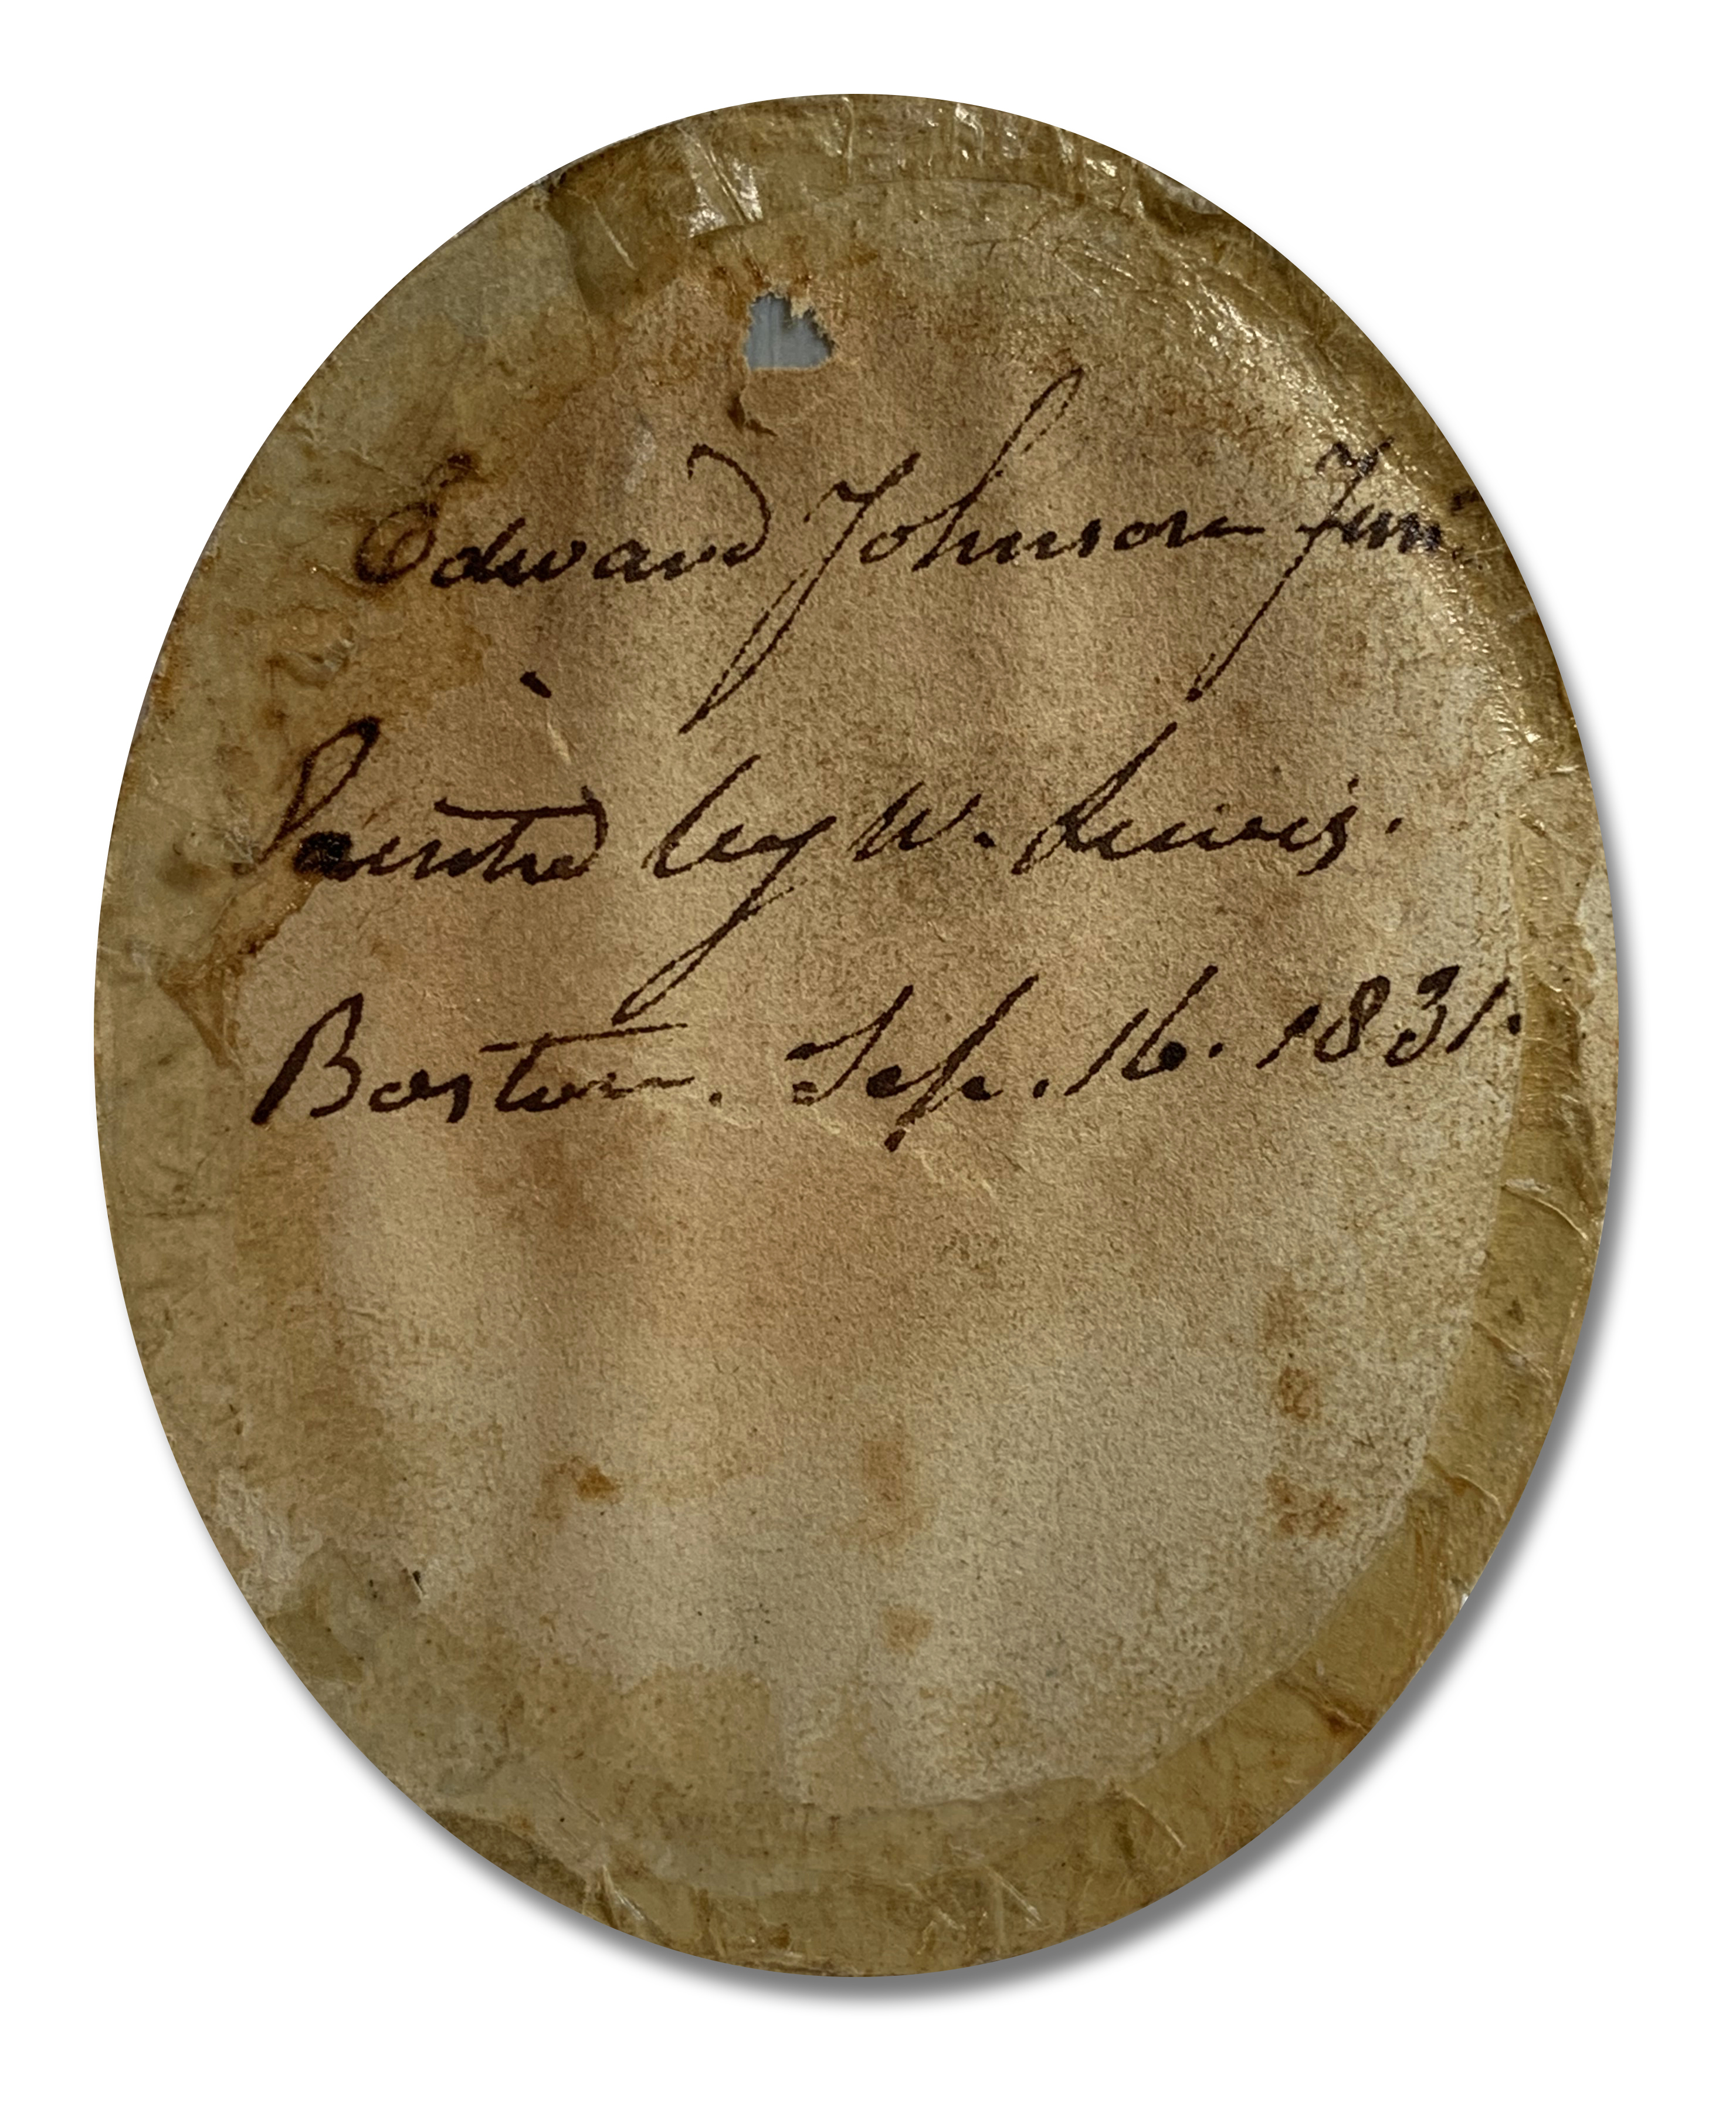 Edward Johnson Junr
Painted by W. Lewis.
Boston. Sep. 16. 1831.